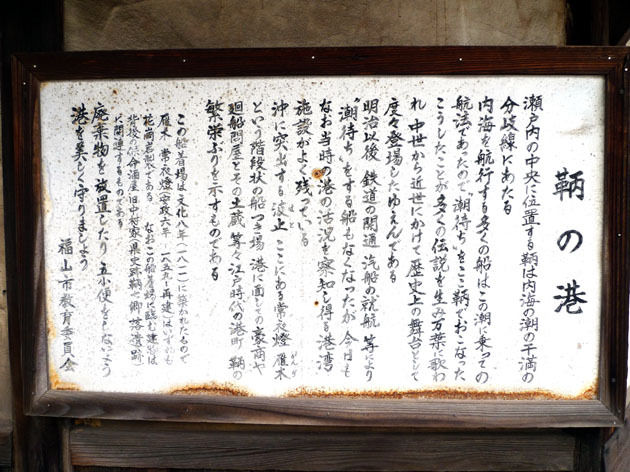 鞆の港
瀬戸内の中央に位置する鞆は内海の潮の干満の
分岐線にあたる
内海を航行する多くの船はこの潮に乗っての
航法であったので〝潮待ち〟をここ鞆でおこなった
こうしたことが多くの伝説を生み万葉に歌わ
れ 中世から近世にかけて歴史上の舞台として
度々登場したゆえんである
明治以後 鉄道の開通 汽船の就航 等により
〝潮待ち〟をする船もなくなったが 今日も
なお当時の港の活況を察知し得る港湾
施設がよく残っている
沖に突出する波止 ここにある常夜燈 雁木
という階段状の船つき場 港に面しての豪商や
廻船問屋とその土蔵 等々江戸時代の港町 鞆の
繁栄ぶりを示すものである
この船着場は文化八年(一八一一)に築かれたもので
雁木 常夜燈(安政六年 一八五九 再建)はいずれも
花崗岩製である なおこの船着場に臨む建物は
背後の保命酒屋旧中村家(県史跡鞆七卿落遺跡)
に関連するものである
廃棄物を放置したり 大小便をしないよう
港を美しく守りましょう
福山市教育委員会